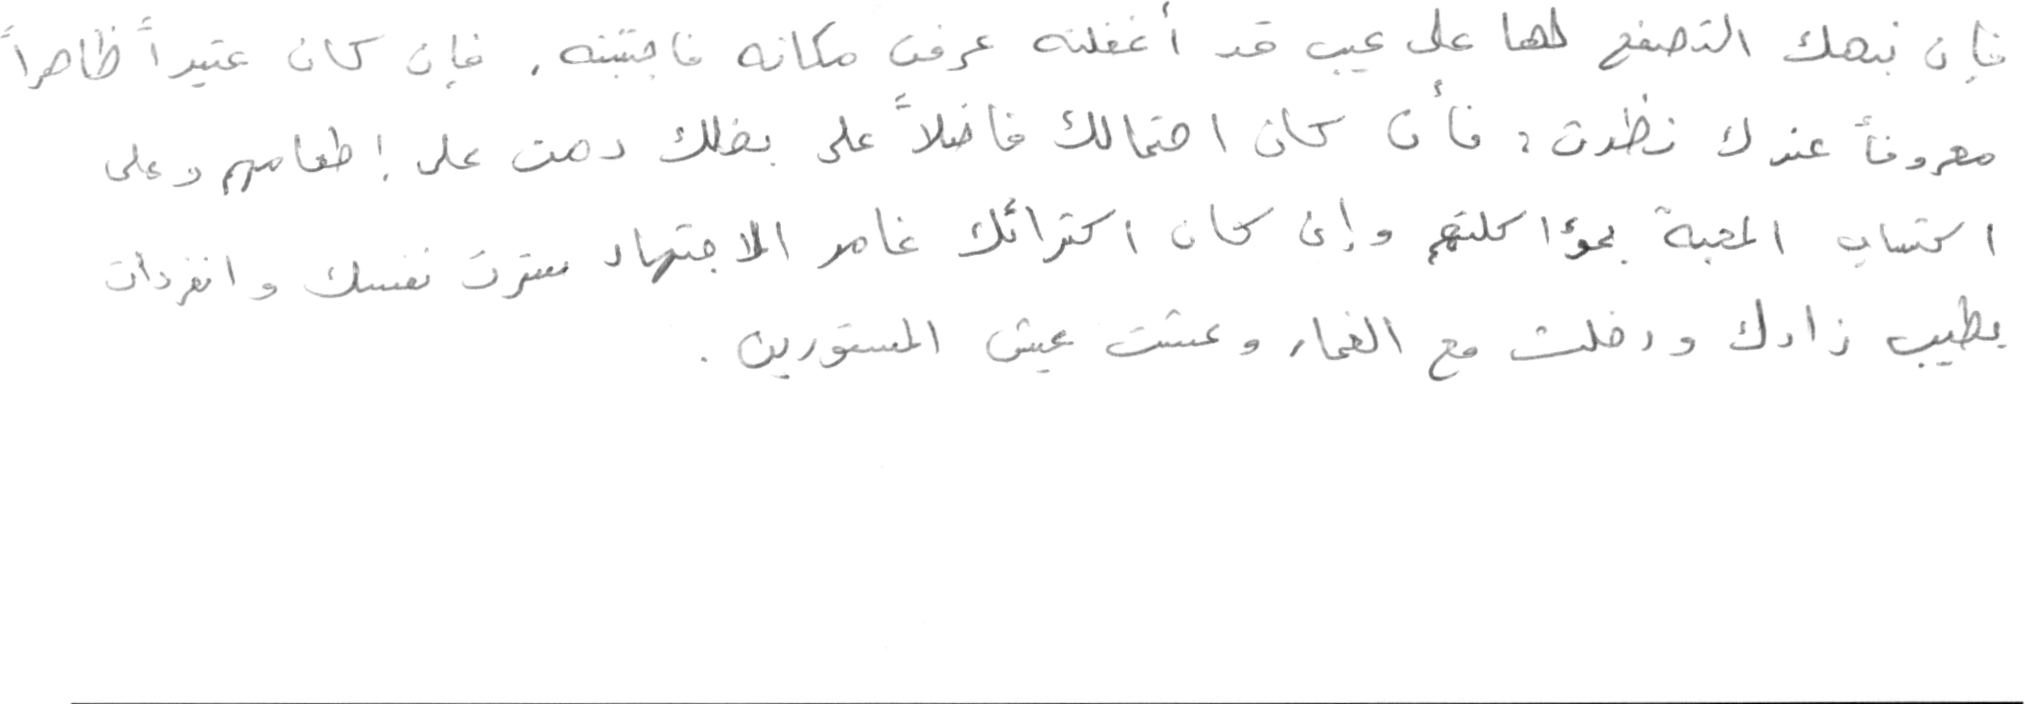 فإن نبهك التصفح لها على عيب قد أغفلته عرفت مكانه فاجتنبته، فإن كان عتيداً ظاهراً
معروفاً عندك نظرت: فأن كان احتمالك فاضلاً على بخلك دمت على إطعامهم وعلى
اكتساب المحبة بمؤاكلتهم وإن كان اكتراثك غامر الاجتهاد سترت نفسك وانفردت
بطيب زادك ودخلت مع الغمار وعشت عيش المستورين.